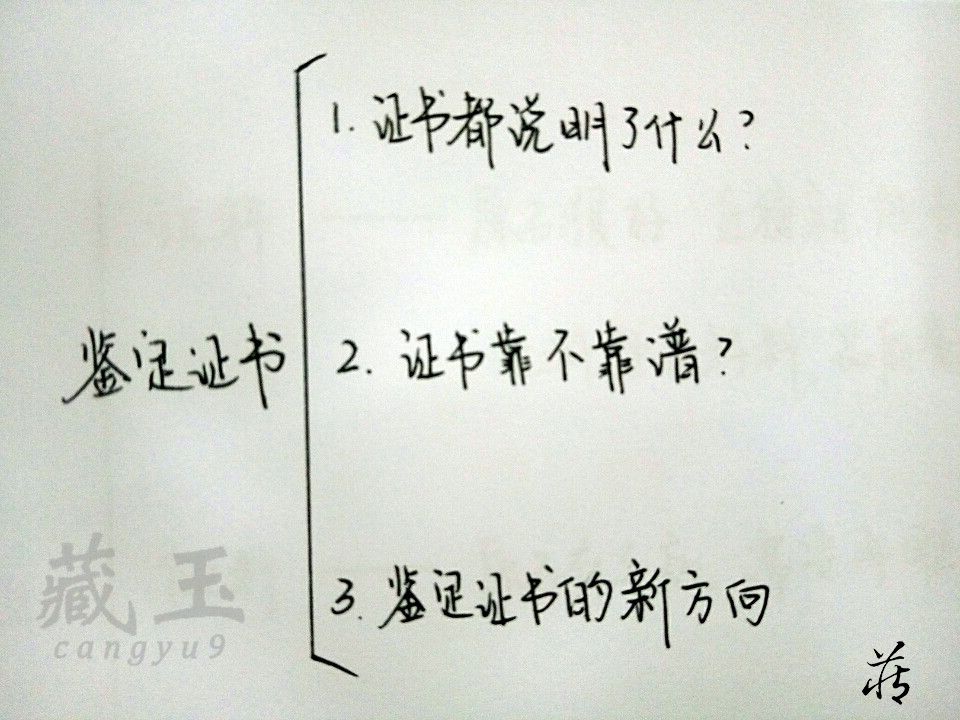 1. 证书都说明了什么?
鉴定证书
2. 证书靠不靠谱?
3. 鉴定证书的新方向
藏玉
cangyu9